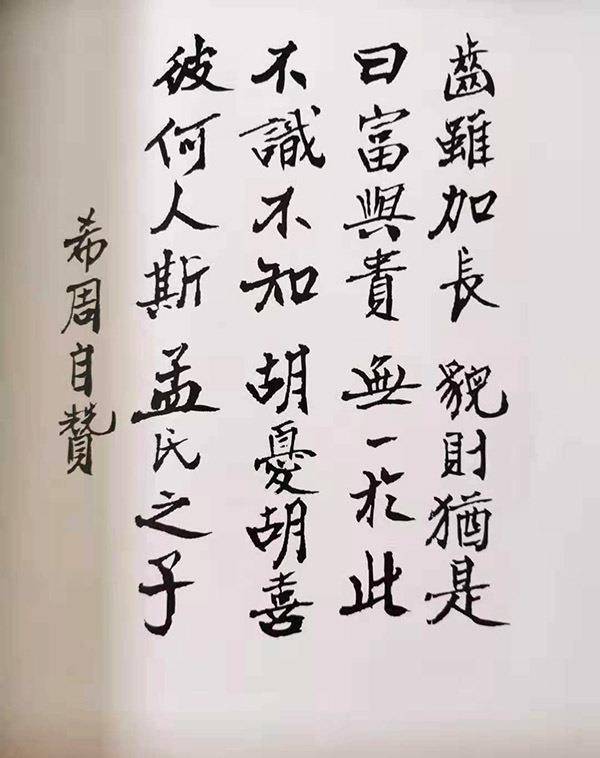 齒雖加長 貌則猶是
曰富與貴 無一於此
不識不知 胡憂胡喜
彼何人斯 孟氏之子
希周自贊